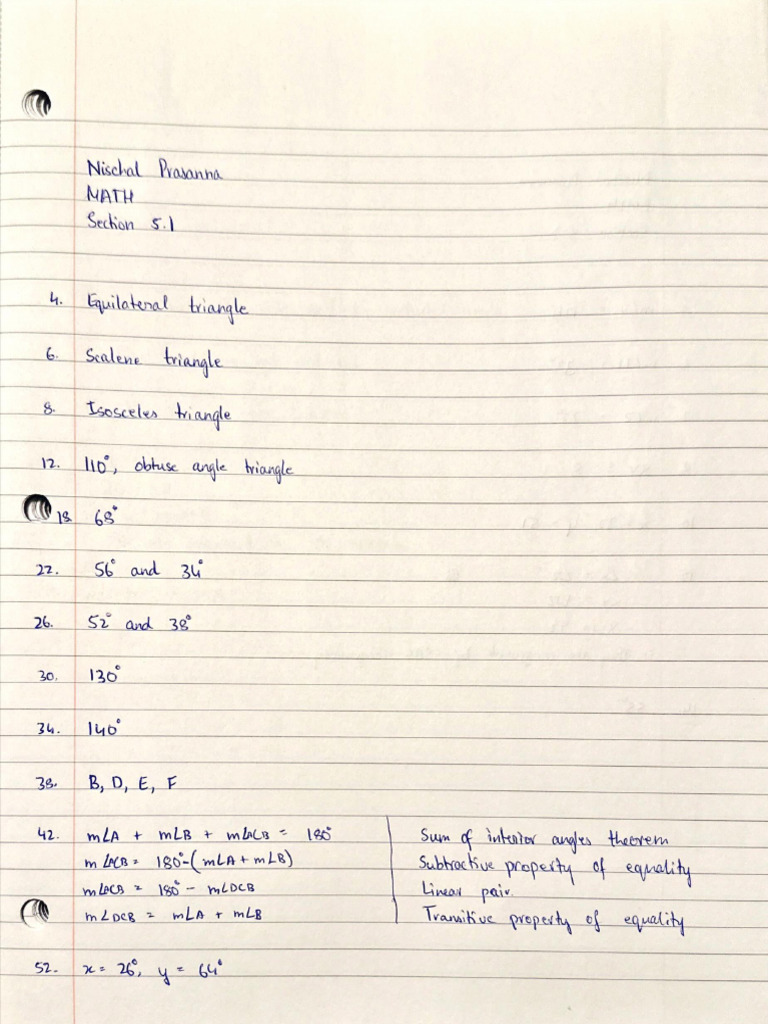 Nischal Prasanna
MATH
Section 5.1
4. Equilateral triangle
6. Scalene triangle
8. Isosceles triangle
12. 110°, obtuse angle triangle
18 68°
22. 56° and 34°
26. 52° and 38°
30. 130°
34. 140°
38. B, D, E, F
42. m∠A + m∠B + m∠ACB = 180° Sum of interior angles theorem
m∠ACB = 180°-(m∠A + m∠B) Subtractive property of equality
m∠ACB = 180° - m∠DCB Linear pair.
m∠DCB = m∠A + m∠B Transitive property of equality
52. x = 26°, y = 64°